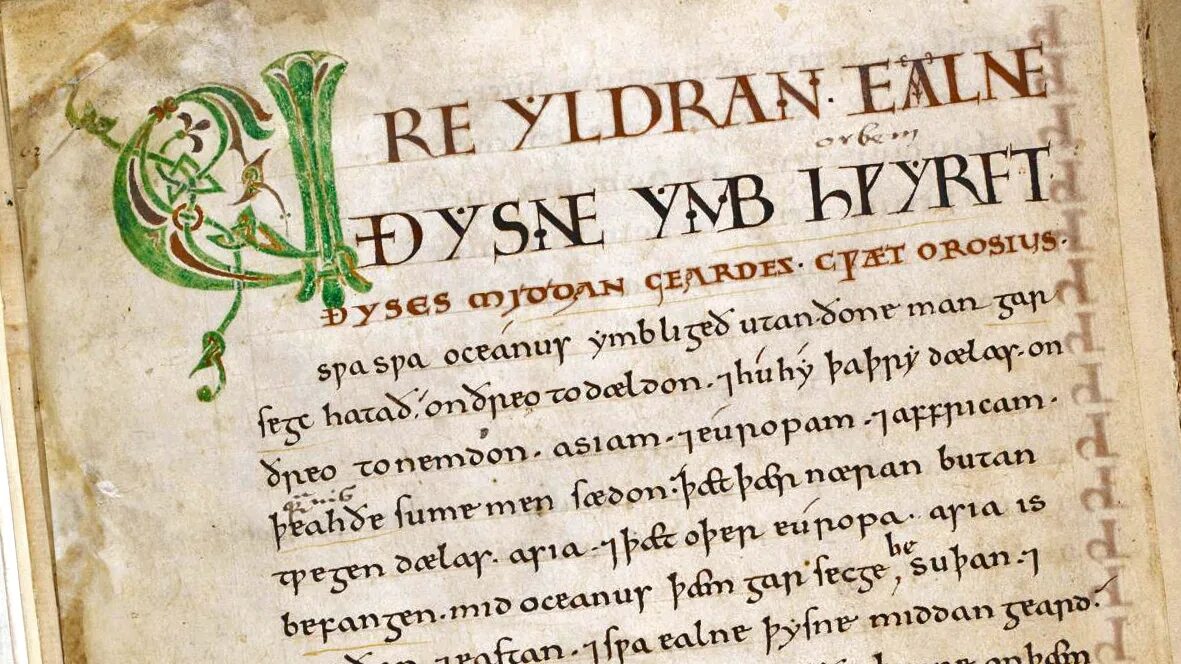 URE ẎLDRAN· EALNE
orbem
ÐẎSNE ẎMB HǷẎRFT
ÐYSES MIDDAN GEARDES· CǷÆT OROSIUS·
sƿa sƿa oceánus ẏmbligeð utan ðone man gar
segc hatað, on ðreo todældon· ⁊ hú hẏ þa þrẏ dælas· on
ðreo tonemdon· asiam· ⁊ európam· ⁊ affricam·
þeah ðe sume men sædon· þæt þær næran butan
tƿegen dælas· asia· ⁊ þæt oþer európa· asia is
be
befangen· mid oceanus þæm garsecge, suþan· ⁊
⁊ eastan· ⁊ sƿa ealne þẏsne middan geard·